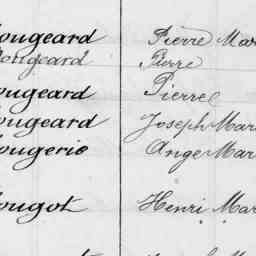 ougeard Pierre Mar
ougeard Pierre
ougeard Pierre
ougeard Joseph Mar
ougerie Ange Mar
ougot Henri Mar